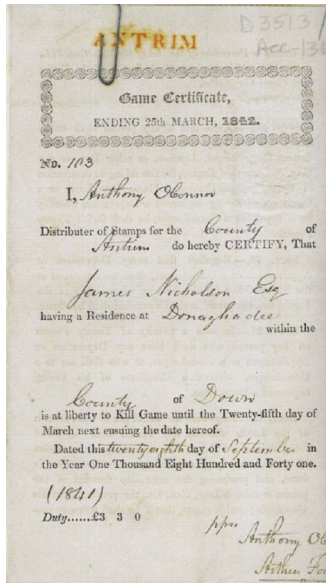 D3513/
ANTRIM
Acc-13
Game Certificate,
ENDING 25th MARCH, 1842.
No. 103
I, Anthony O'Connor
Distributer of Stamps for the County of
Antrim do hereby CERTIFY, That
James Nicholson Esq
having a Residence at Donaghadee
within the
County of Down
is at liberty to Kill Game until the Twenty-fifth day of
March next ensuing the date hereof.
Dated this twenty eighth day of September in
the Year One Thousand Eight Hundred and Forty one.
(1841)
Duty......£3 3 0
ppr
Anthony OC
Arthur For